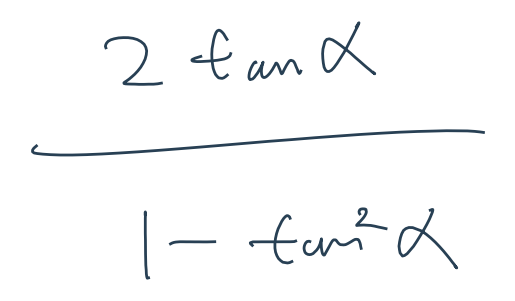 2 tan α
1 - tan² α